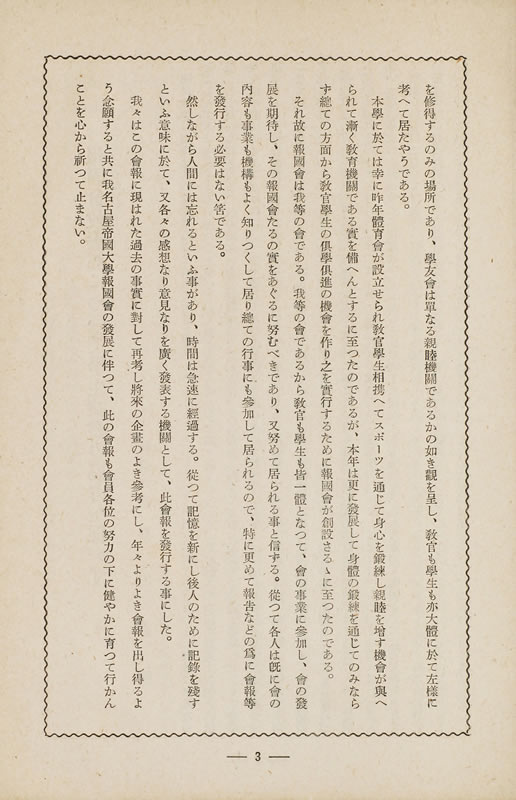 を修得するのみの場所であり、學友會は單なる親睦機關であるかの如き觀を呈し、敎官も學生も亦大體に於て左樣に
考へて居たやうである。
本學に於ては幸に昨年體育會が設立せられ敎官學生相携へてスポーツを通じて身心を鍛練し親睦を增す機會が與へ
られて漸く敎育機關である實を備へんとするに至つたのであるが、本年は更に發展して身體の鍛練を通じてのみなら
ず總ての方面から敎官學生の俱學俱進の機會を作り之を實行するために報國會が創設さるゝに至つたのである。
それ故に報國會は我等の會である。我等の會であるから敎官も學生も皆一體となつて、會の事業に參加し、會の發
展を期待し、その報國會たるの實をあぐるに努むべきであり、又努めて居られる事と信ずる。從つて各人は旣に會の
內容も事業も機構もよく知りつくして居り總ての行事にも參加して居られるので、特に更めて報告などの爲に會報等
を發行する必要はない筈である。
然しながら人間には忘れるといふ事があり、時間は急速に經過する。從つて記憶を新にし後人のために記錄を殘す
といふ意味に於て、又各々の感想なり意見なりを廣く發表する機關として、此會報を發行する事にした。
我々はこの會報に現はれた過去の事實に對して再考し將來の企畫のよき參考にし、年々よりよき會報を出し得るよ
う念願すると共に我名古屋帝國大學報國會の發展に伴つて、此の會報も會員各位の努力の下に健やかに育つて行かん
ことを心から祈つて止まない。
— 3 —